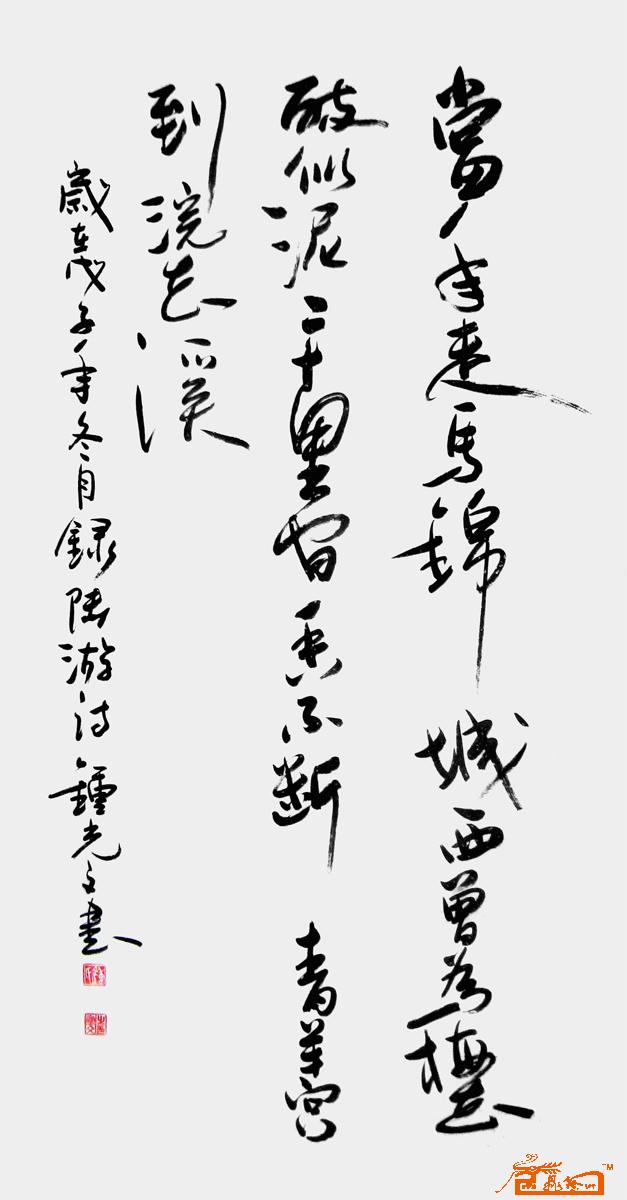 當年走馬錦城西曾為梅花
醉似泥二十里間香不斷青羊宮
到浣花溪
歲在戊子年冬月録陸游詩鍾光文書